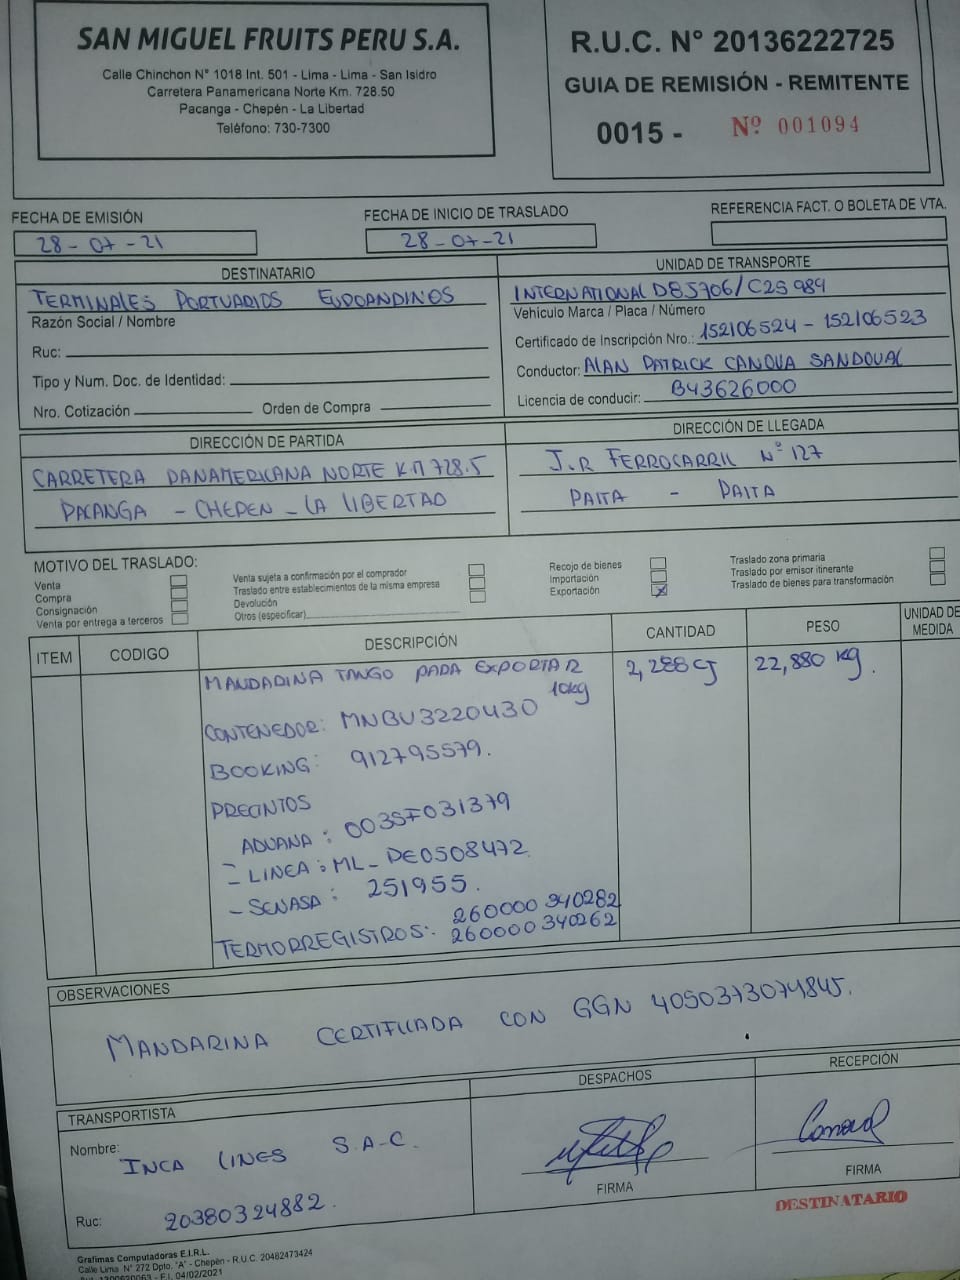 SAN MIGUEL FRUITS PERU S.A.
Calle Chinchon N° 1018 Int. 501 - Lima - Lima - San Isidro
Carretera Panamericana Norte Km. 728.50
Pacanga - Chepén - La Libertad
Teléfono: 730-7300
R.U.C. N° 20136222725
GUIA DE REMISIÓN - REMITENTE
0015 - Nº 001094
FECHA DE EMISIÓN
28 - 07 - 21
FECHA DE INICIO DE TRASLADO
28 - 07 - 21
REFERENCIA FACT. O BOLETA DE VTA.
DESTINATARIO
TERMINALES PORTUARIOS EUROANDINOS
Razón Social / Nombre
Ruc:
Tipo y Num. Doc. de Identidad:
Nro. Cotización Orden de Compra
UNIDAD DE TRANSPORTE
INTERNATIONAL D8J706/C2S989
Vehículo Marca / Placa / Número
Certificado de Inscripción Nro.: 152106524 - 152106523
Conductor: ALAN PATRICK CANOVA SANDOVAL
Licencia de conducir: B43626000
DIRECCIÓN DE PARTIDA
CARRETERA PANAMERICANA NORTE KM 728.5
PACANGA - CHEPEN - LA LIBERTAD
DIRECCIÓN DE LLEGADA
J.R FERROCARRIL N° 127
PAITA - PAITA
MOTIVO DEL TRASLADO:
Venta
Compra
Consignación
Venta por entrega a terceros
Venta sujeta a confirmación por el comprador
Traslado entre establecimientos de la misma empresa
Devolución
Otros (especificar)
Recojo de bienes
Importación
Exportación X
Traslado zona primaria
Traslado por emisor itinerante
Traslado de bienes para transformación
ITEM CODIGO DESCRIPCIÓN CANTIDAD PESO UNIDAD DE MEDIDA
MANDARINA TANGO PARA EXPORTAR 2,288 CJ 22,880 Kg.
10kg
CONTENEDOR: MNBU3220430
BOOKING: 912795579.
PRECINTOS
ADUANA: 003SF031379
- LINEA: ML-PE0508472
- SENASA: 251955.
TERMORREGISTROS: 260000340282
260000340262
OBSERVACIONES
MANDARINA CERTIFICADA CON GGN 4050373074845.
TRANSPORTISTA
Nombre: INCA LINES S.A.C.
Ruc: 20380324882.
DESPACHOS
FIRMA
RECEPCIÓN
FIRMA
DESTINATARIO
Grafimas Computadoras E.I.R.L.
Calle Lima N° 272 Dpto. "A" - Chepén - R.U.C. 20482473424
F.I. 04/02/2021